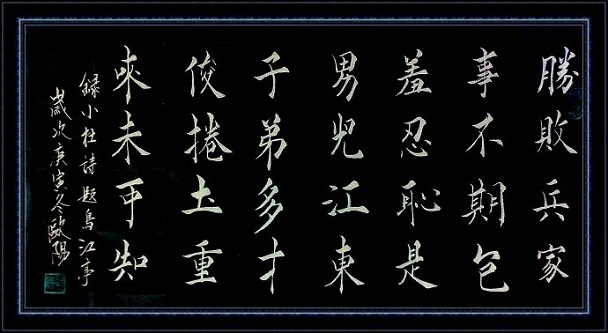 勝敗兵家
事不期包
羞忍恥是
男兒江東
子弟多才
俊捲土重
來未可知
録小杜詩題烏江亭
歲次庚寅冬歐陽